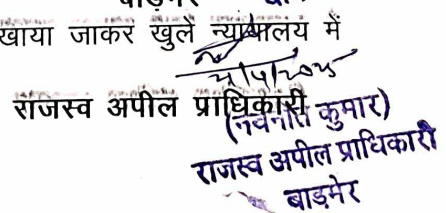 खाया जाकर खुले न्यायालय में
राजस्व अपील प्राधिकारी
(नवनीत कुमार)
राजस्व अपील प्राधिकारी
बाड़मेर